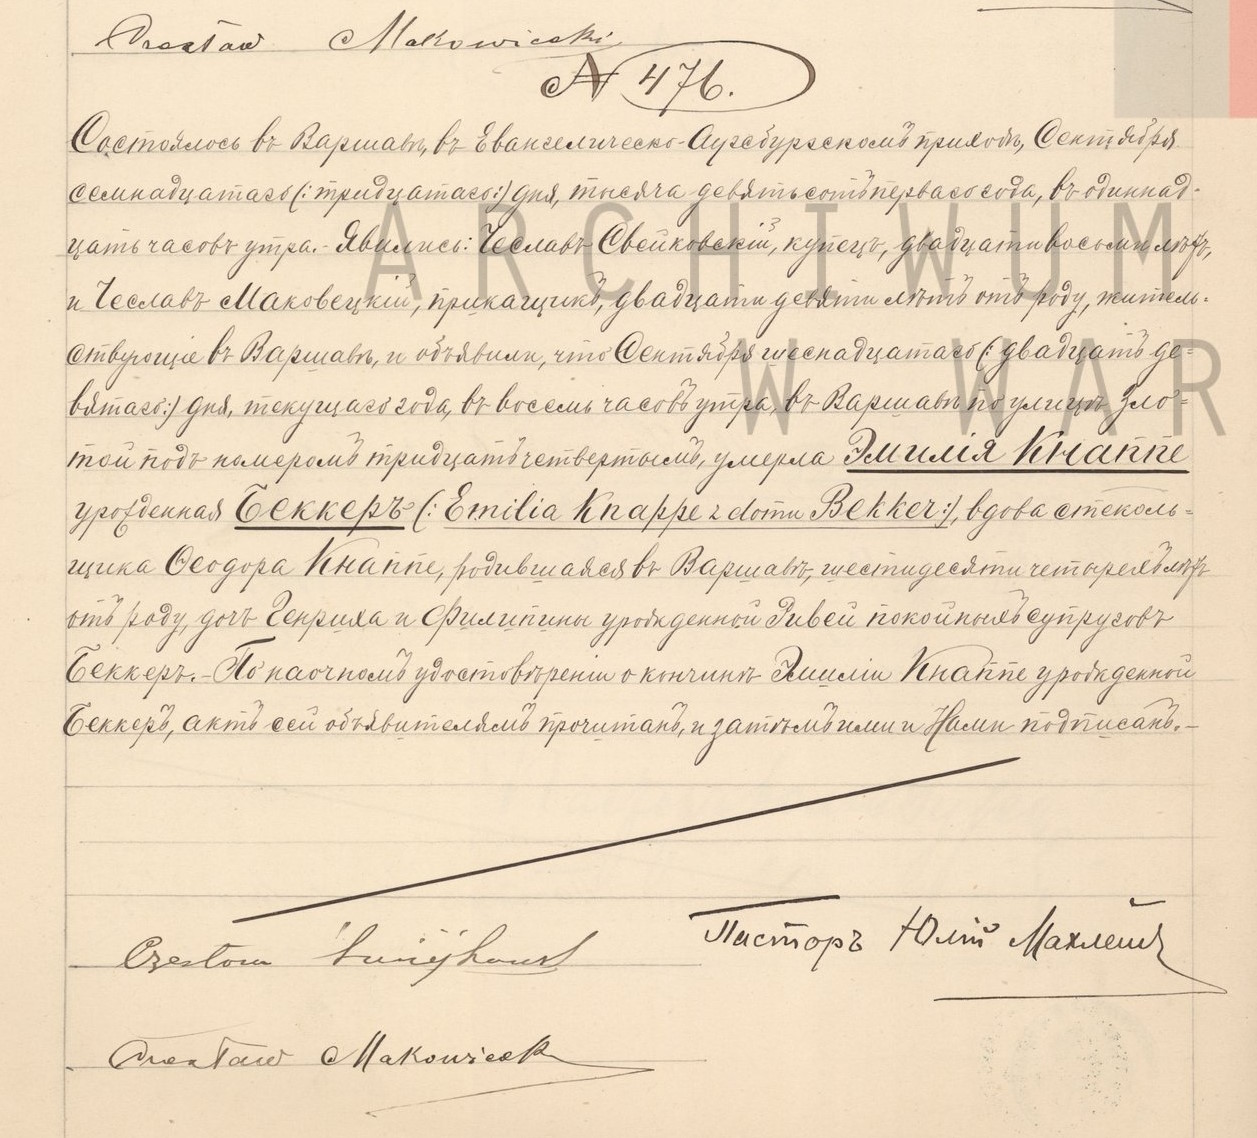 Czesław Makowiecki
N 476.
Состоялось въ Варшавѣ, въ Евангелическо-Аугсбургскомъ приходѣ, Сентября
семнадцатаго (: тридцатаго:) дня, тысяча девятьсотъ перваго года, въ одиннад-
цать часовъ утра. - Явились: Чеславъ Свейковскій, купецъ, двадцати восьми лѣтъ,
и Чеславъ Маковецкій, прикащикъ, двадцати девяти лѣтъ отъ роду, житель-
ствующіе въ Варшавѣ, и объявили, что Сентября шеснадцатаго (: двадцать де=
вятаго:) дня, текущаго года, въ восемь часовъ утра, въ Варшавѣ по улицѣ Зло=
той подъ номеромъ тридцать четвертымъ, умерла Эмилія Кнаппе
урожденная Беккеръ (: Emilia Knappe z domu Bekker:), вдова стеколь=
щика Ѳеодора Кнаппе, родившаяся въ Варшавѣ, шестидесяти четырехъ лѣтъ
отъ роду, дочь Генриха и Филипины урожденной Ривей покойныхъ супруговъ
Беккеръ. - По наочномъ удостовѣреніи о кончинѣ Эмиліи Кнаппе урожденной
Беккеръ, актъ сей объявителямъ прочитанъ, и затѣмъ ими и Нами подписанъ. -
Пасторъ Юлій Махлейдъ
Czesław
Czesław Makowiecki
ARCHIWUM
W WAR